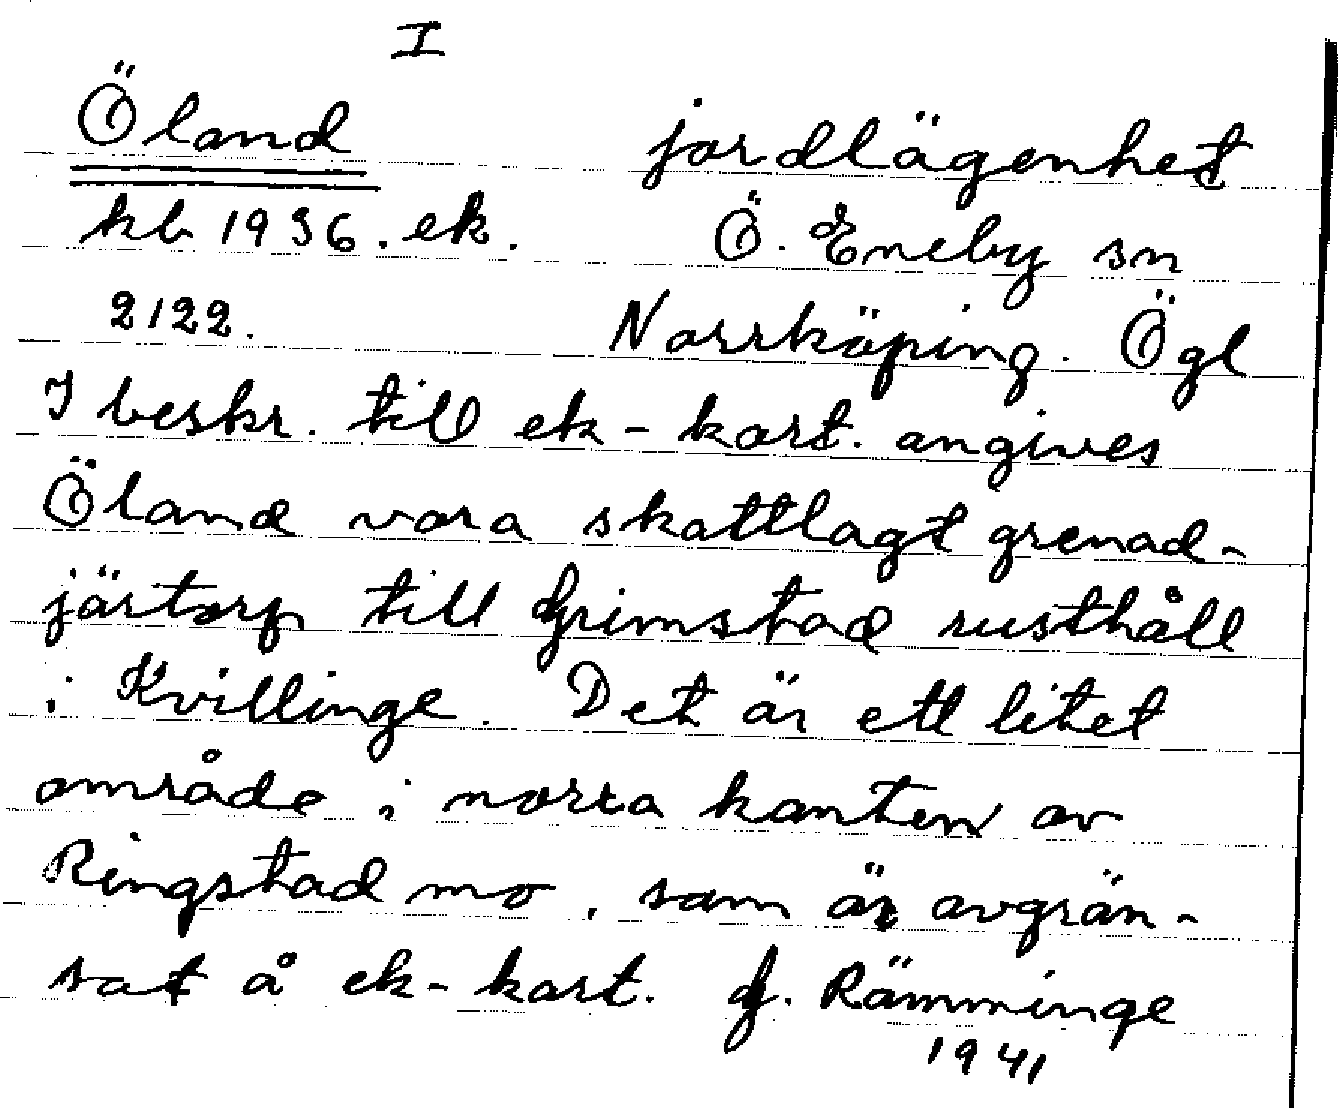 I
Öland jordlägenhet
kb 1936. ek. Ö. Eneby sn
2122. Norrköping. Ögl
I beskr. till ek-kart. angives
Öland vara skattlagt grenad-
järtorp till Grimstad rusthåll
i Kvillinge. Det är ett litet
område i norra kanten av
Ringstad mo, som är avgrän-
sat å ek-kart. G. Rämminge
1941